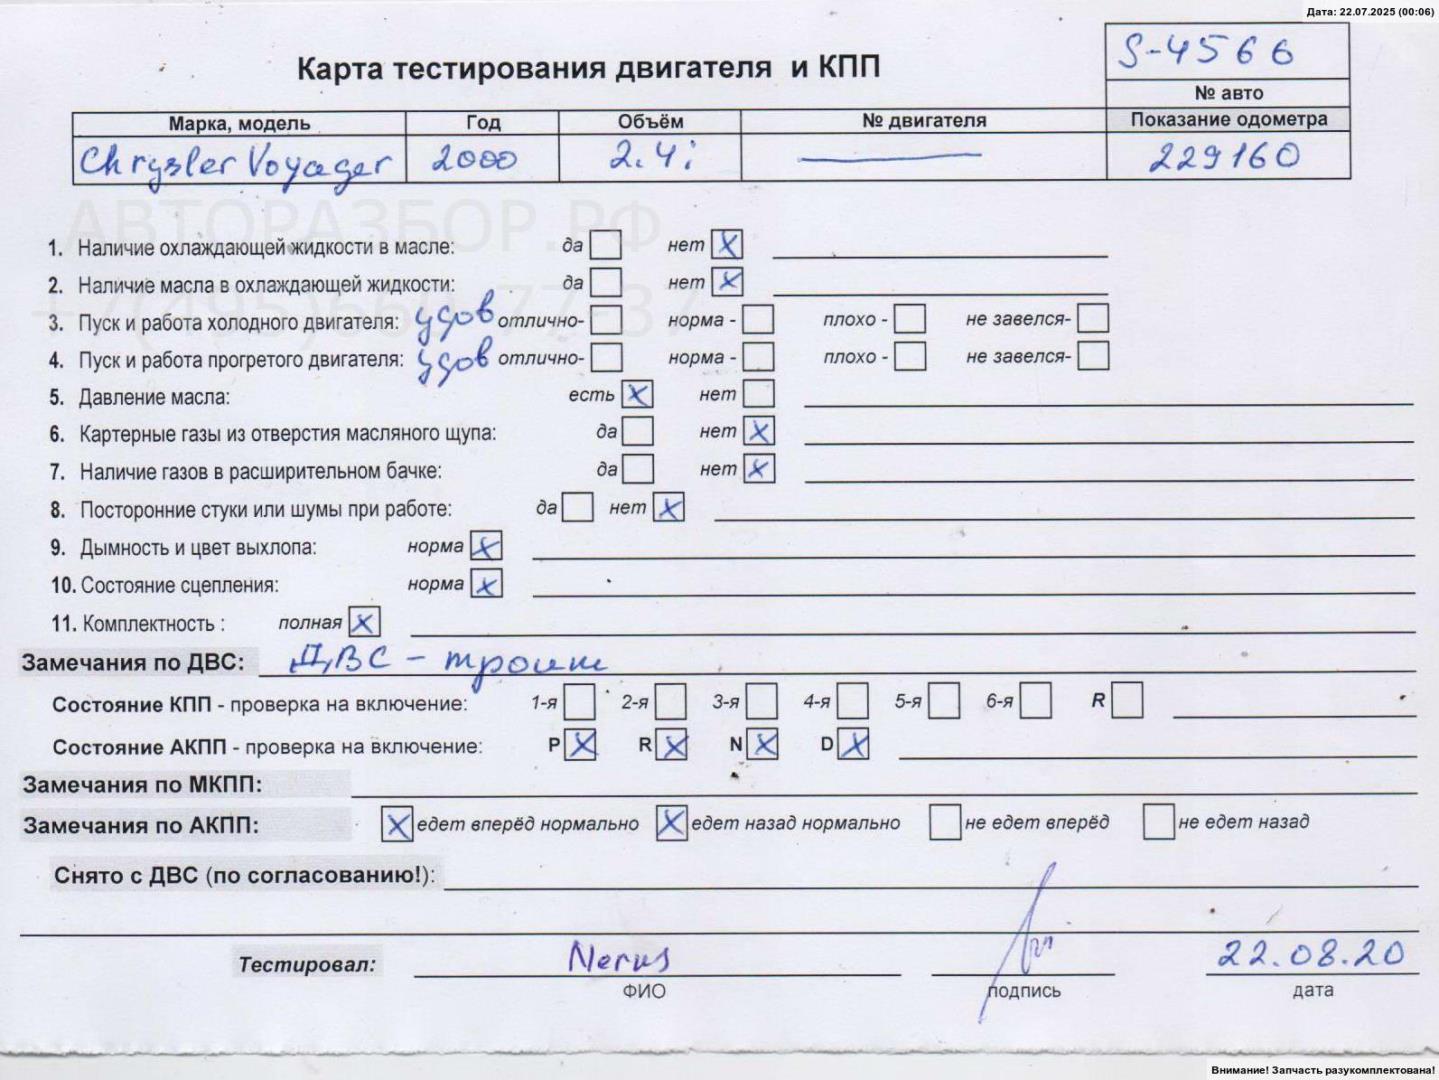 Дата: 22.07.2025 (00:06)
S-4566
Карта тестирования двигателя и КПП
№ авто
Марка, модель Год Объём № двигателя Показание одометра
Chrysler Voyager 2000 2.4i — 229160
АВТОРАЗБОР.РФ
1. Наличие охлаждающей жидкости в масле: да нет X
2. Наличие масла в охлаждающей жидкости: да нет X
3. Пуск и работа холодного двигателя: удов отлично- норма - плохо - не завелся-
4. Пуск и работа прогретого двигателя: удов отлично- норма - плохо - не завелся-
5. Давление масла: есть X нет
6. Картерные газы из отверстия масляного щупа: да нет X
7. Наличие газов в расширительном бачке: да нет X
8. Посторонние стуки или шумы при работе: да нет X
9. Дымность и цвет выхлопа: норма X
10. Состояние сцепления: норма X
11. Комплектность : полная X
Замечания по ДВС: ДВС - троит
Состояние КПП - проверка на включение: 1-я 2-я 3-я 4-я 5-я 6-я R
Состояние АКПП - проверка на включение: P X R X N X D X
Замечания по МКПП:
Замечания по АКПП: X едет вперёд нормально X едет назад нормально не едет вперёд не едет назад
Снято с ДВС (по согласованию!):
Тестировал: 22.08.20
ФИО подпись дата
Внимание! Запчасть разукомплектована!